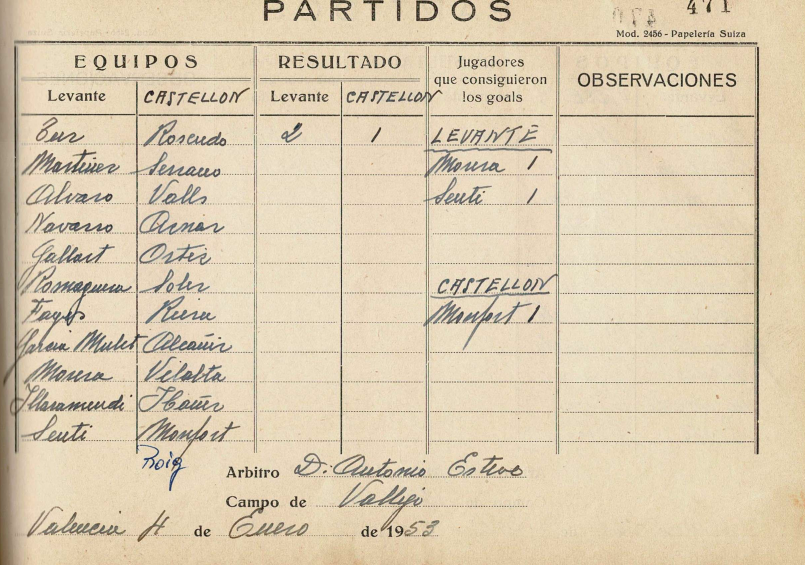 PARTIDOS
471
Mod. 2456 - Papelería Suiza
EQUIPOS RESULTADO Jugadores que consiguieron los goals OBSERVACIONES
Levante CASTELLON Levante CASTELLON
Eur Rosendo 2 1 LEVANTE
Martinez Serrano Morera 1
Alvaro Valls Senti 1
Navarro Arnar
Gallart Ortiz
Romaguera Soler CASTELLON
Fayos Riera Monfort 1
Garcia Mulet Alcañiz
Morera Vilalta
Illaramendi Ibañez
Senti Monfort
Roig
Arbitro D. Antonio Esteve
Campo de Vallejo
Valencia 4 de Enero de 1953